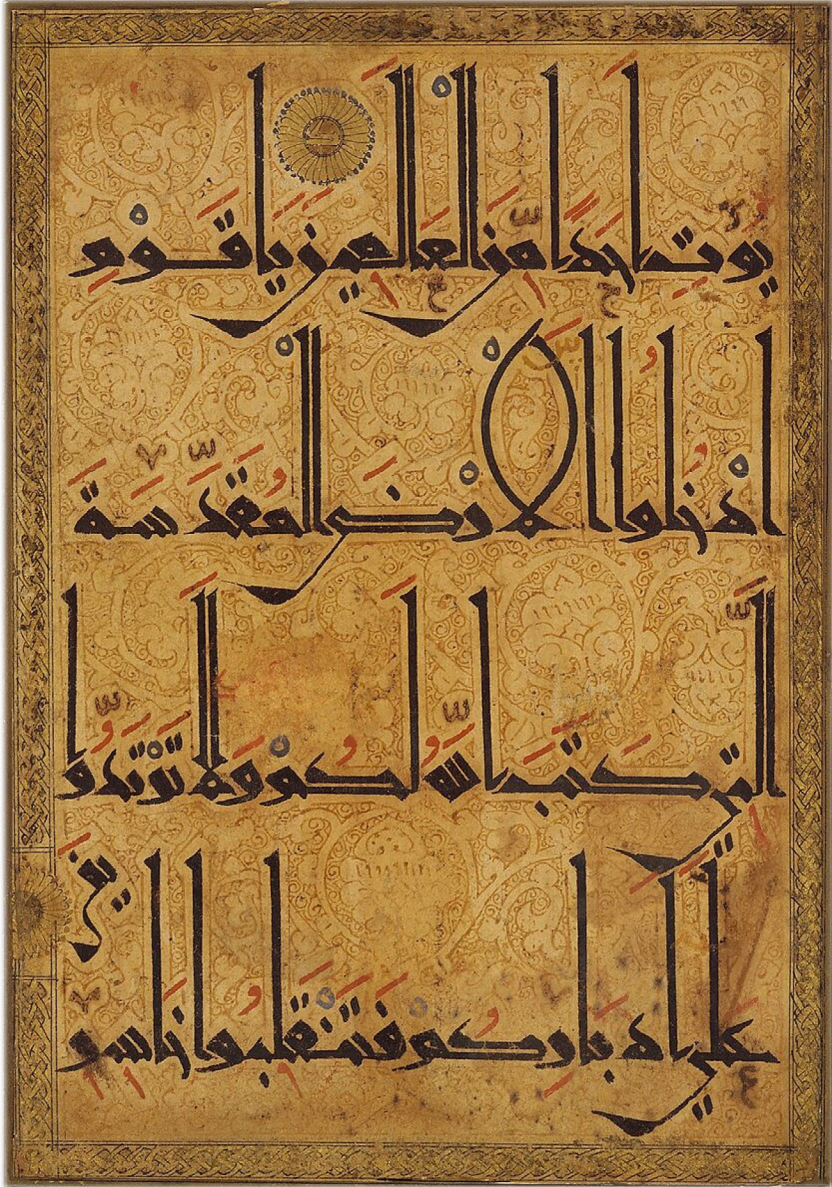 يُؤْتِ أَحَدًا مِّنَ الْعَالَمِينَ يَا قَوْمِ
ادْخُلُوا الْأَرْضَ الْمُقَدَّسَةَ
الَّتِي كَتَبَ اللَّهُ لَكُمْ وَلَا تَرْتَدُّوا
عَلَىٰ أَدْبَارِكُمْ فَتَنْقَلِبُوا خَاسِرِينَ